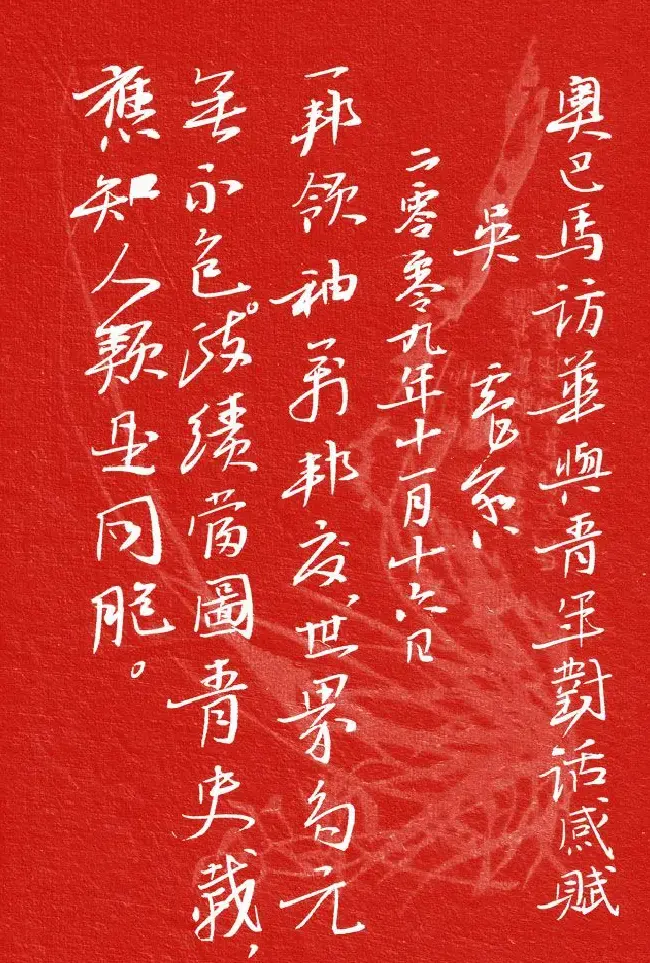 奧巴馬訪華與青年對話感賦
吳
二零零九年十一月十六日
一邦領袖萬邦交、世界多元
無不包。政績當圖青史載，
應知人類是同胞。